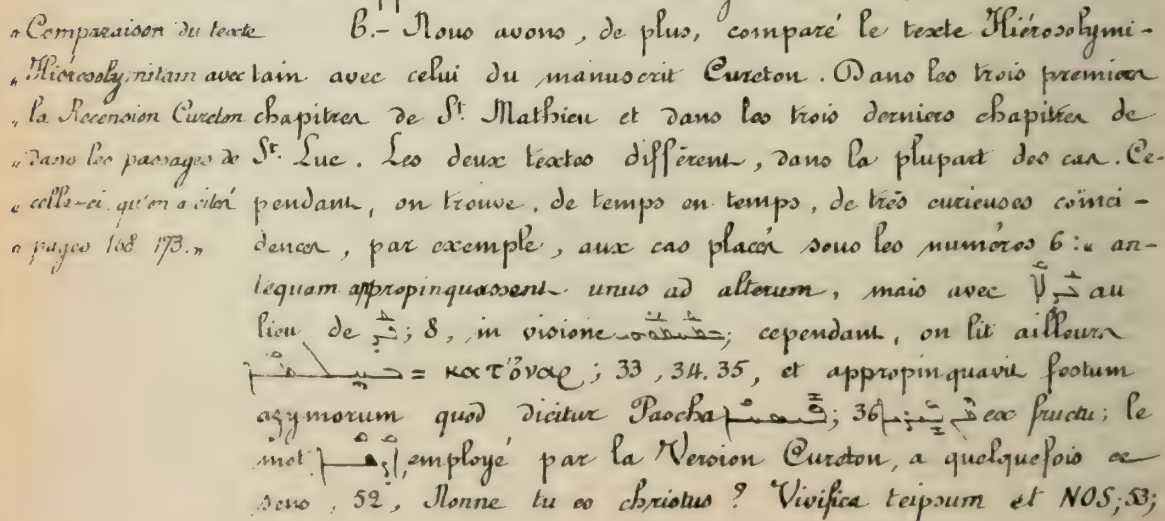 « Comparaison du texte
« Hiérosolymitain avec
« la Recension Cureton
« dans les passages de
« celle-ci qu'on a cités
« pages 168 173. »
6.- Nous avons, de plus, comparé le texte Hiérosolymi-
tain avec celui du manuscrit Cureton. Dans les trois premiers
chapitres de St. Mathieu et dans les trois derniers chapitres de
St. Luc. Les deux textes diffèrent, dans la plupart des cas. Ce-
pendant, on trouve, de temps en temps, de très curieuses coïnci-
dences, par exemple, aux cas placés sous les numéros 6: « an-
tequam appropinquassent unus ad alterum, mais avec au
lieu de ; 8, in visione ; cependant, on lit ailleurs
= κατ'ὄναρ ; 33, 34. 35, et appropinquavit festum
azymorum quod dicitur Pascha ; 36 ex fructu; le
mot , employé par la Version Cureton, a quelquefois ce
sens, 52, Nonne tu es christus ? Vivifica teipsum et NOS; 53;